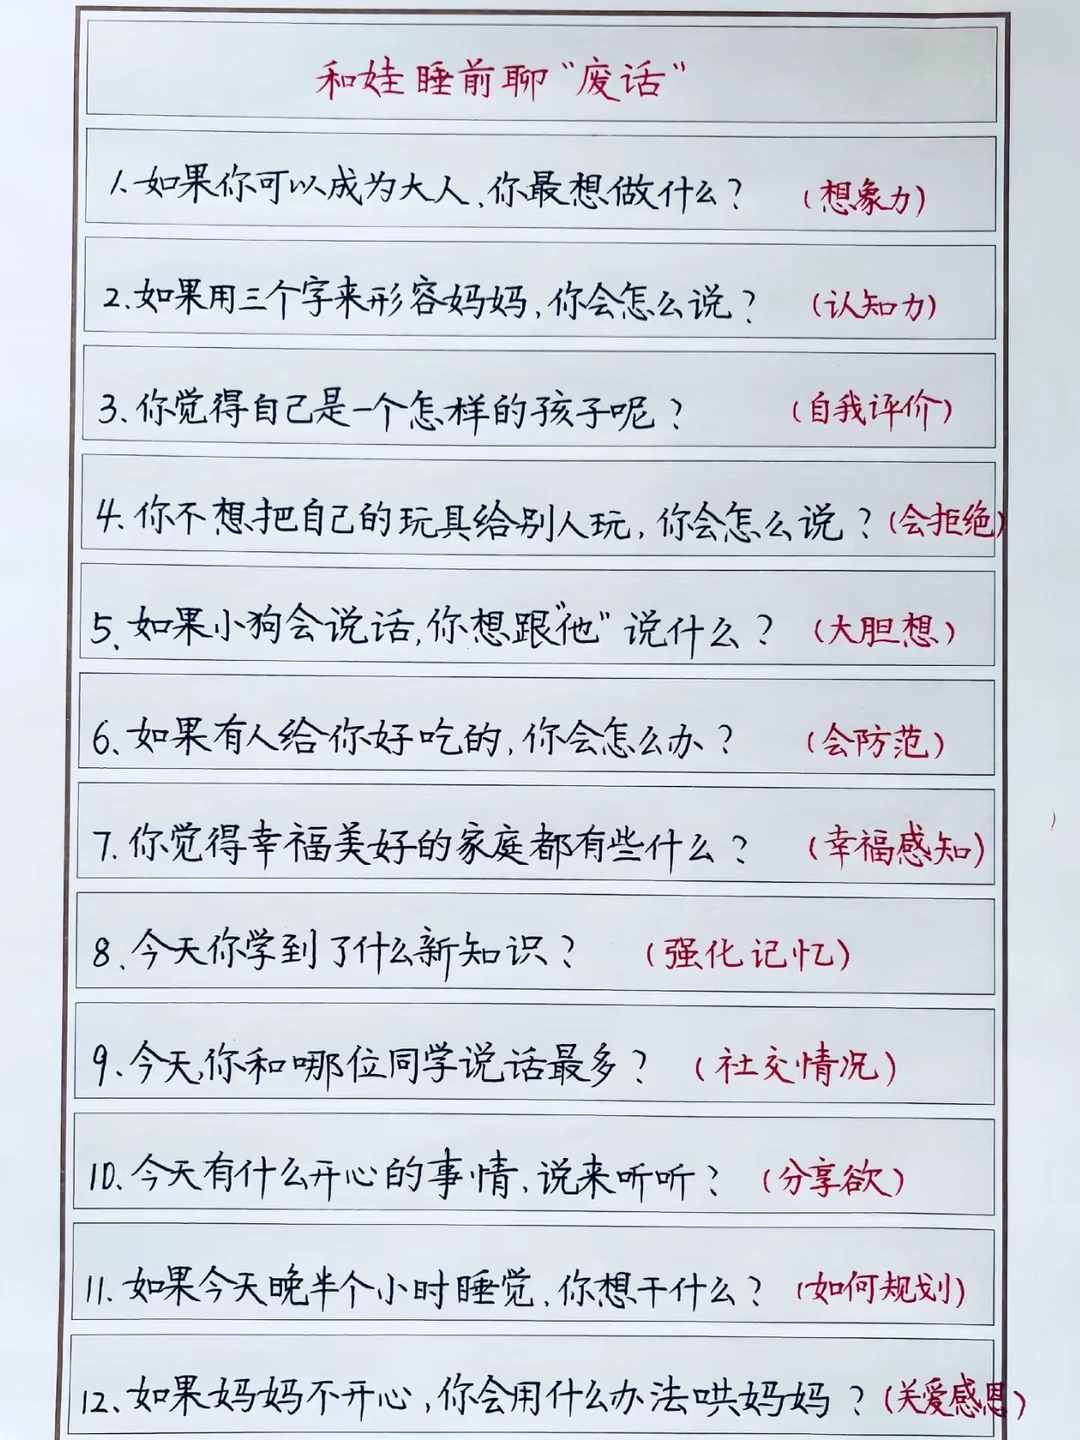 和娃睡前聊“废话”
1.如果你可以成为大人、你最想做什么？ （想象力）
2.如果用三个字来形容妈妈,你会怎么说？ （认知力）
3.你觉得自己是一个怎样的孩子呢？ （自我评价）
4.你不想把自己的玩具给别人玩,你会怎么说？（会拒绝）
5.如果小狗会说话,你想跟“他”说什么？ （大胆想）
6.如果有人给你好吃的,你会怎么办？ （会防范）
7.你觉得幸福美好的家庭都有些什么？ （幸福感知）
8.今天你学到了什么新知识？ （强化记忆）
9.今天,你和哪位同学说话最多？ （社交情况）
10.今天有什么开心的事情、说来听听？ （分享欲）
11.如果今天晚半个小时睡觉、你想干什么？ （如何规划）
12.如果妈妈不开心,你会用什么办法哄妈妈？（关爱感恩）